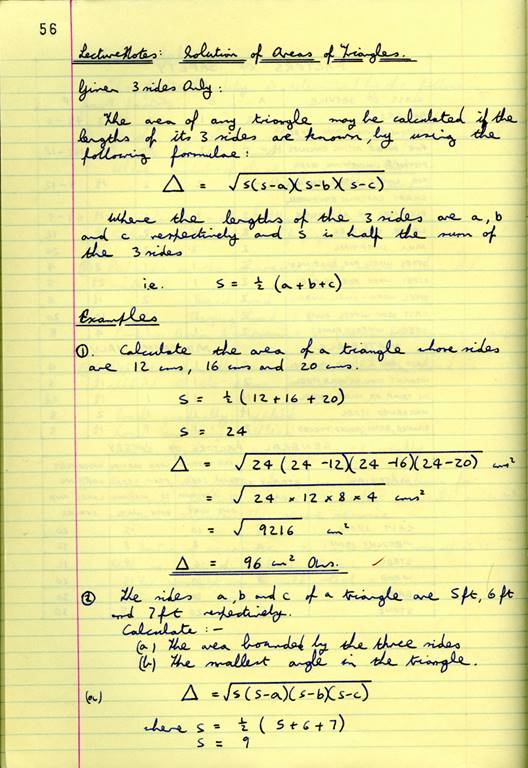 56
Lecture Notes: Solution of Areas of Triangles.
Given 3 sides Only:
The area of any triangle may be calculated if the
lengths of its 3 sides are known, by using the
following formulae:
Δ = √s(s-a)(s-b)(s-c)
Where the lengths of the 3 sides are a, b
and c respectively and S is half the sum of
the 3 sides
i.e. S = ½ (a+b+c)
Examples
①. Calculate the area of a triangle whose sides
are 12 cms, 16 cms and 20 cms.
S = ½ (12+16+20)
S = 24
Δ = √24 (24-12)(24-16)(24-20) cms²
= √24 × 12 × 8 × 4 cms²
= √9216 cm²
Δ = 96 cm² Ans. ✓
② The sides a, b and c of a triangle are 5ft, 6ft
and 7ft respectively.
Calculate :-
(a) The area bounded by the three sides
(b) The smallest angle in the triangle.
(a) Δ = √s(s-a)(s-b)(s-c)
where S = ½ (5+6+7)
S = 9